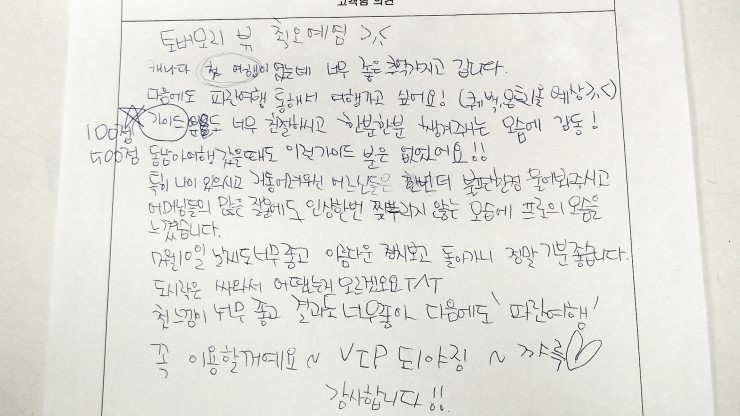 고객님 의견
토버모리 뷰 최오예뻠 >.<
캐나다 첫 여행이었는데 너무 좋은 추억가지고 갑니다.
다음에도 파란여행 통해서 여행가고 싶어요! (퀘벡,몬트리올 예상 >.<)
100점 ☆ 가이드 너무 친절하시고 한분한분 챙겨주시는 모습에 감동!
400점 동남아여행 갔을때도 이런가이드 분은 없었어요!!
특히 나이 있으시고 거동어려우신 어르신들은 한번더 불편한점 물어봐주시고
어머님들의 많은 질문에도 인상한번 찌뿌리지 않는 모습에 프로의 모습을
느꼈습니다.
7월10일 날씨도너무좋고 아름다운 경치보고 돌아가니 정말 기분좋습니다.
도시락은 싸와서 어땠는지 모르겠어요 TㅅT
첫느낌이 너무 좋고 결과도 너무좋아 다음에도 '파란여행'
꼭 이용할꺼예요~ VIP 되야징 ~ 꺄륵
감사합니다!!